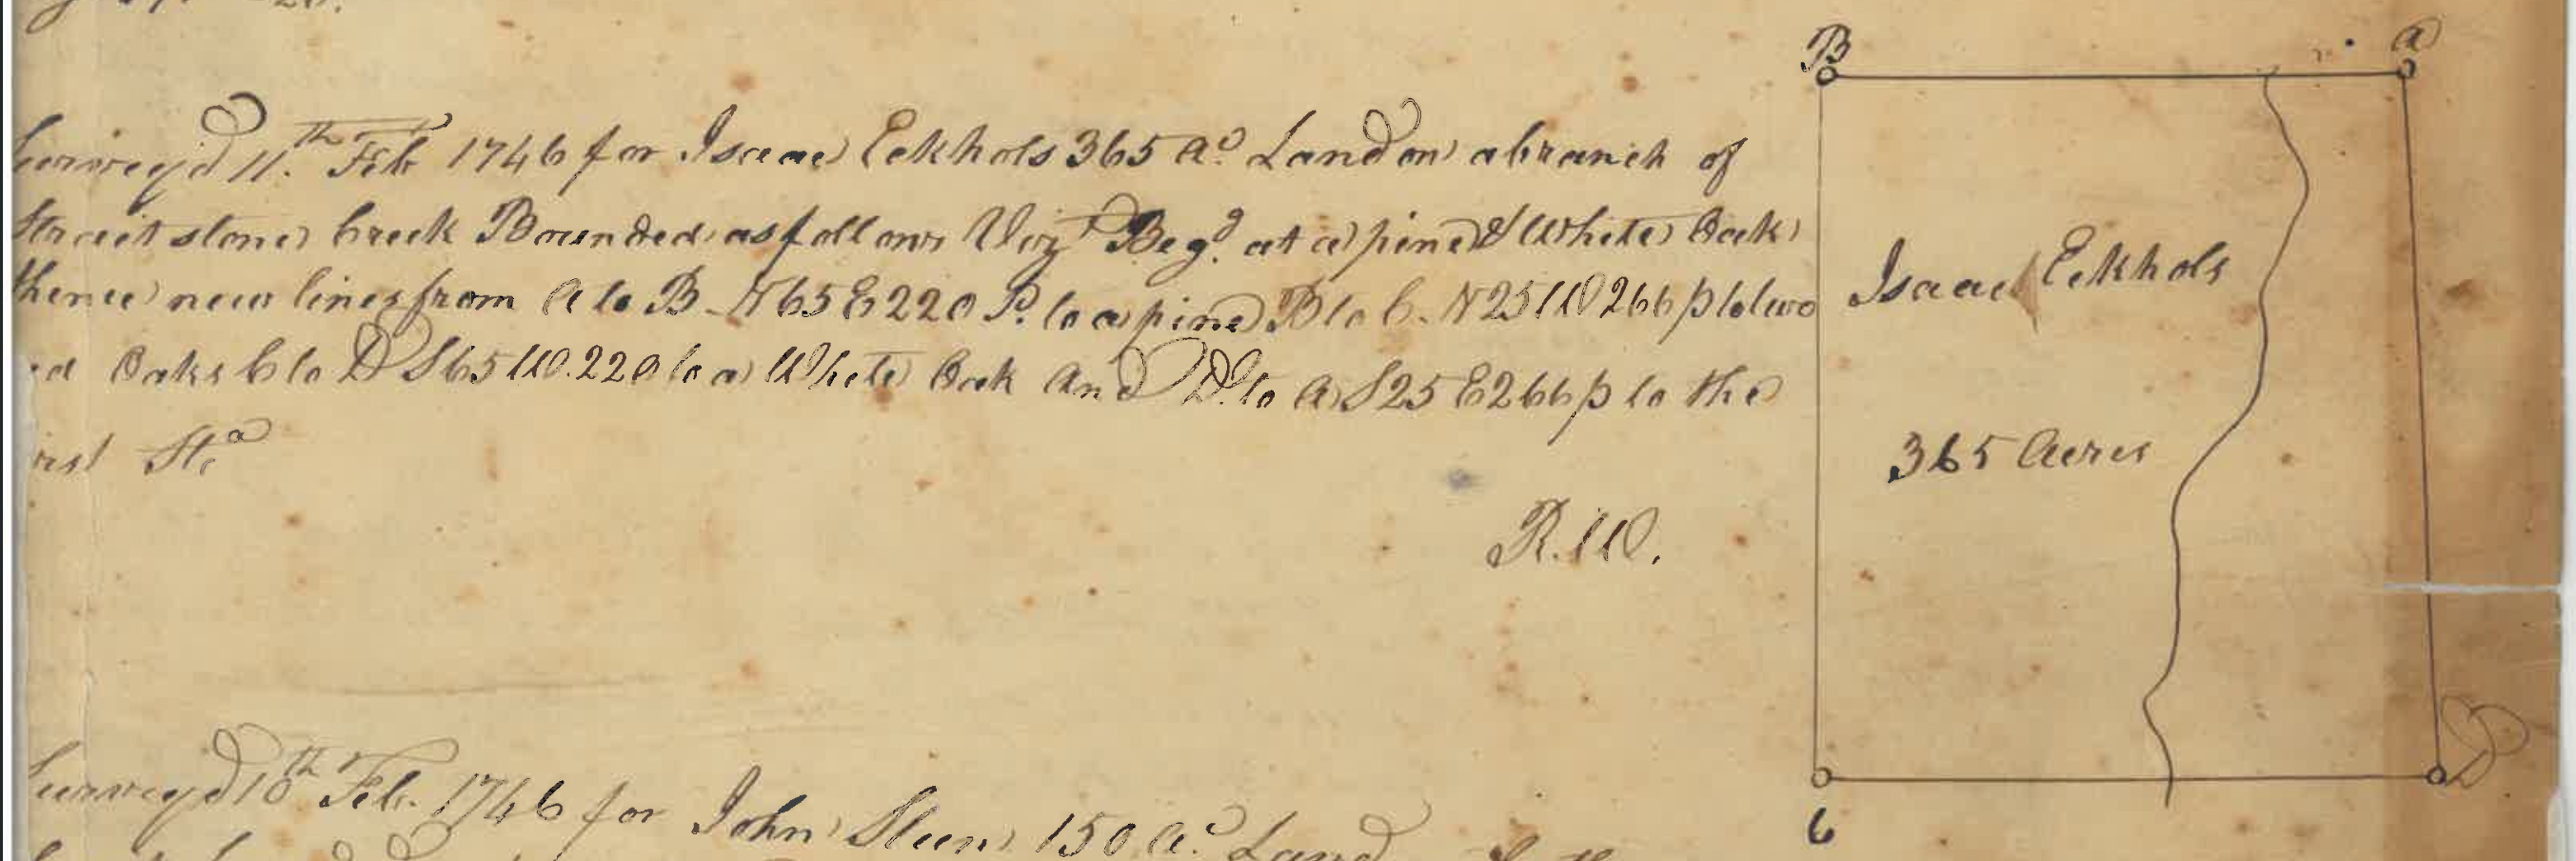 Survey'd 11.th Feb 1746 for Isaac Eckhols 365 Ac. Land on a branch of
Straitstone Creek Bounded as follows Viz.t Beg.g at a pine & White Oak
thence new lines from A to B N65E220 P. to a pine B to C. N25W266 p to two
ed Oaks C to D S65W.220 to a White Oak And D. to A S25E266 p to the
irst St.a
R.W.
B
A
Isaac Eckhols
365 Acres
C
D
Survey'd 10th Feb. 1746 for John Steen 150 Ac. Land